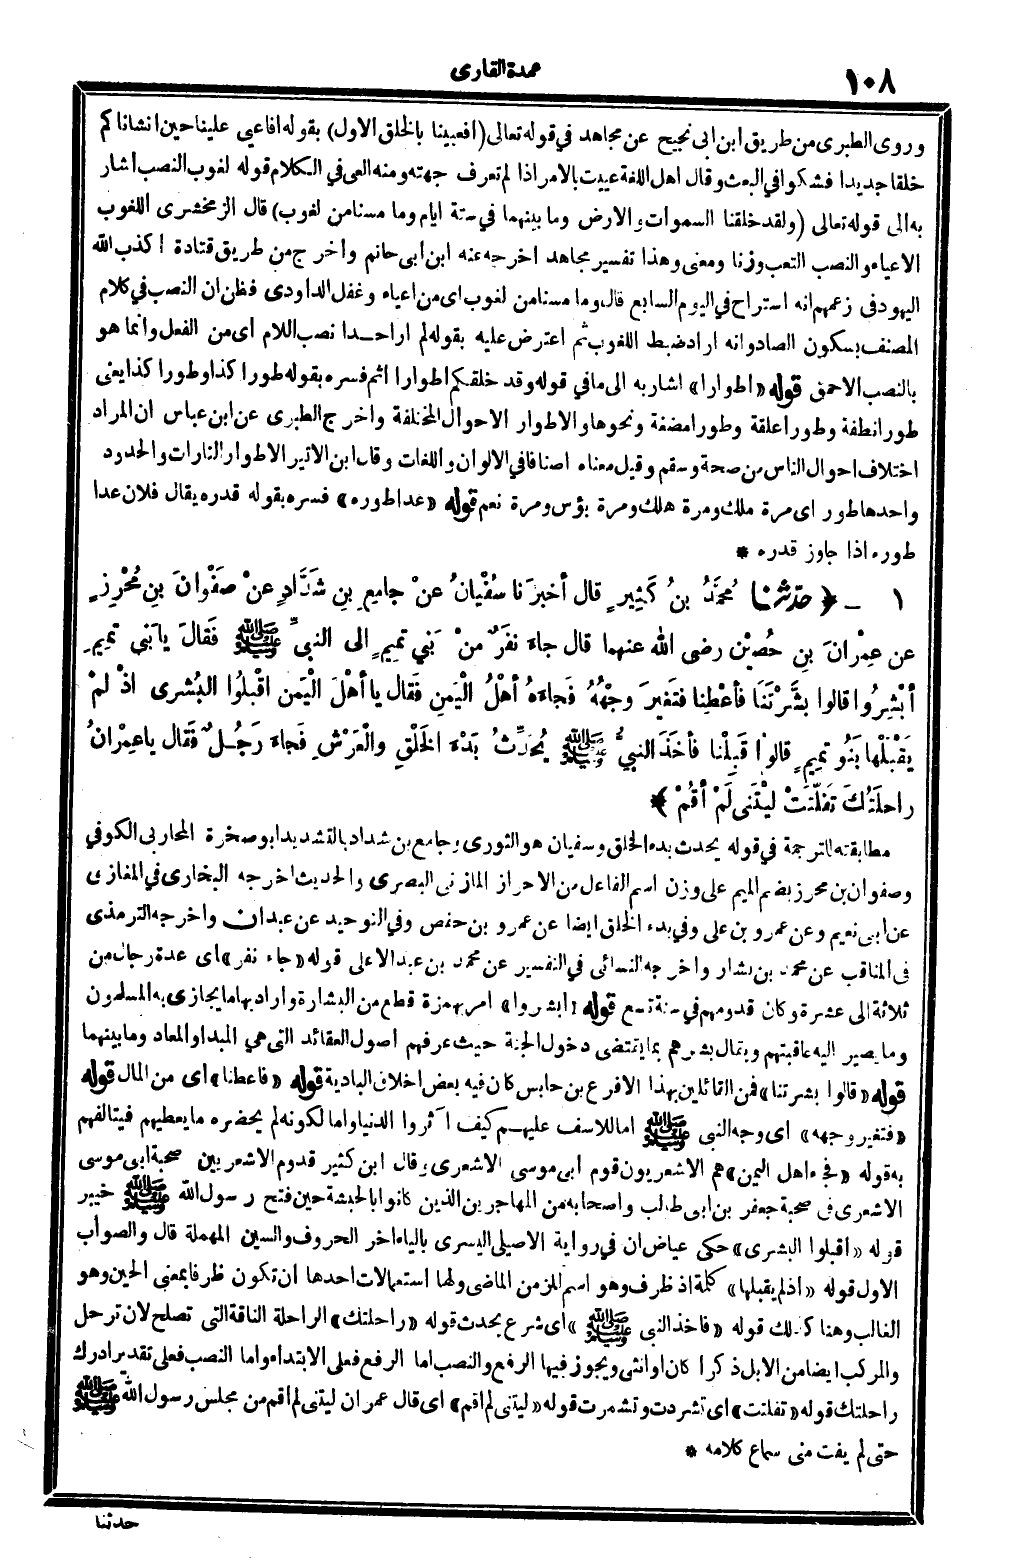 ١٠٨
عمدة القارى
وروى الطبرى من طريق ابن ابى نجيح عن مجاهد في قوله تعالى (افعيينا بالخلق الاول) بقوله افاعيى علينا حين انشاناكم
خلقا جديدا فشكوا في البعث وقال اهل اللغة عييت بالامر اذا لم تعرف جهته ومنه العى في الكلام قوله لغوب النصب اشار
به الى قوله تعالى (ولقد خلقنا السموات والارض وما بينهما في ستة ايام وما مسنا من لغوب) قال الزمخشرى اللغوب
الاعياء والنصب التعب وزنا ومعنى وهذا تفسير مجاهد اخرجه عنه ابن ابى حاتم واخرج من طريق قتادة اكذب الله
اليهود فى زعمهم انه استراح في اليوم السابع قال وما مسنا من لغوب اى من اعياء وغفل الداودى فظن ان النصب في كلام
المصنف بسكون الصاد وانه اراد ضبط اللغوب ثم اعترض عليه بقوله لم ار احدا نصب اللام اى من الفعل وانما هو
بالنصب الاحمق قوله «اطوارا» اشار به الى ما في قوله وقد خلقكم اطوارا اثم فسره بقوله طورا كذا وطورا كذا يعنى
طورا نطفة وطورا علقة وطورا مضغة ونحوها والاطوار الاحوال المختلفة واخرج الطبرى عن ابن عباس ان المراد
اختلاف احوال الناس من صحة وسقم وقيل معناه اصنافا في الالوان واللغات وقال ابن الاثير الاطوار التارات والحدود
واحدها طور اى مرة ملك ومرة هلك ومرة بؤس ومرة نعم قوله «عدا طوره» فسره بقوله قدره يقال فلان عدا
طوره اذا جاوز قدره *
١ - ﴿ حَدَّثَنَا مُحَمَّدُ بنُ كَثِيرٍ قال أخبرَنا سُفْيانُ عنْ جامِعِ بنِ شَدَّادٍ عنْ صَفْوانَ بنِ مُحْرِزٍ
عن عِمْرانَ بنِ حُصَيْنٍ رضى الله عنهما قال جاءَ نَفَرٌ منْ بَنِي تمِيمٍ الى النبيِّ ﷺ فَقالَ يا بَنِي تَمِيمٍ
أبْشِرُوا قالوا بشَّرْتَنَا فأعْطِنا فتَغَيرَ وجْهُهُ فَجاءَهُ أهْلُ الْيَمَنِ فَقال يا أهْلَ الْيَمَنِ اقْبَلُوا البُشرى اذْ لمْ
يَقْبَلْها بَنُو تمِيمٍ قالوا قَبِلْنا فأخَذَ النبيُّ ﷺ يُحَدِّثُ بَدْءَ الخَلْقِ والْعَرْشِ فَجاءَ رَجُلٌ فَقال يا عِمْرانُ
راحلَتُكَ تفَلَّتَتْ ليْتَنى لَمْ أقُمْ ﴾
مطابقته للترجمة في قوله يحدث بدء الخلق وسفيان هو الثورى وجامع بن شداد بالتشديد ابو صخرة المحاربى الكوفي
وصفوان بن محرز بضم الميم على وزن اسم الفاعل من الاحراز المازنى البصرى والحديث اخرجه البخارى في المغازى
عن ابى نعيم وعن عمرو بن على وفي بدء الخلق ايضا عن عمرو بن حفص وفي التوحيد عن عبدان واخرجه الترمذى
فى المناقب عن محمد بن بشار واخرجه النسائى في التفسير عن محمد بن عبد الاعلى قوله «جاء نفر» اى عدة رجال من
ثلاثة الى عشرة وكان قدومهم في سنة تسع قوله «أبشروا» امر بهمزة قطع من البشارة واراد بها ما يجازى به المسلمون
وما يصير اليه عاقبتهم ويقال بشرهم بما يقتضى دخول الجنة حيث عرفهم اصول العقائد التى هي المبدا والمعاد وما بينهما
قوله «قالوا بشرتنا» فمن القائلين بهذا الاقرع بن حابس كان فيه بعض اخلاق البادية قوله «فاعطنا» اى من المال قوله
«فتغير وجهه» اى وجه النبى ﷺ اما للاسف عليهم كيف آثروا الدنيا واما لكونه لم يحضره ما يعطيهم فيتالفهم
به قوله «فجاءه اهل اليمن» هم الاشعريون قوم ابى موسى الاشعرى وقال ابن كثير قدوم الاشعريين صحبة ابى موسى
الاشعرى فى صحبة جعفر بن ابى طالب واصحابه من المهاجرين الذين كانوا بالحبشة حين فتح رسول الله ﷺ خيبر
قوله «اقبلوا البشرى» حكى عياض ان في رواية الاصيلى اليسرى بالياء اخر الحروف والسين المهملة قال والصواب
الاول قوله «اذ لم يقبلها» كلمة اذ ظرف وهو اسم للزمن الماضى ولها استعمالات احدها ان تكون ظرفا بمعنى الحين وهو
الغالب وهنا كذلك قوله «فاخذ النبى ﷺ» اى شرع يحدث قوله «راحلتك» الراحلة الناقة التى تصلح لان ترحل
والمركب ايضا من الابل ذكرا كان او انثى ويجوز فيها الرفع والنصب اما الرفع فعلى الابتداء واما النصب فعلى تقدير ادرك
راحلتك قوله «تفلتت» اى تشردت وتشمرت قوله «ليتنى لم اقم» اى قال عمران ليتنى لم اقم من مجلس رسول الله ﷺ
حتى لم يفت منى سماع كلامه *
حدثنا